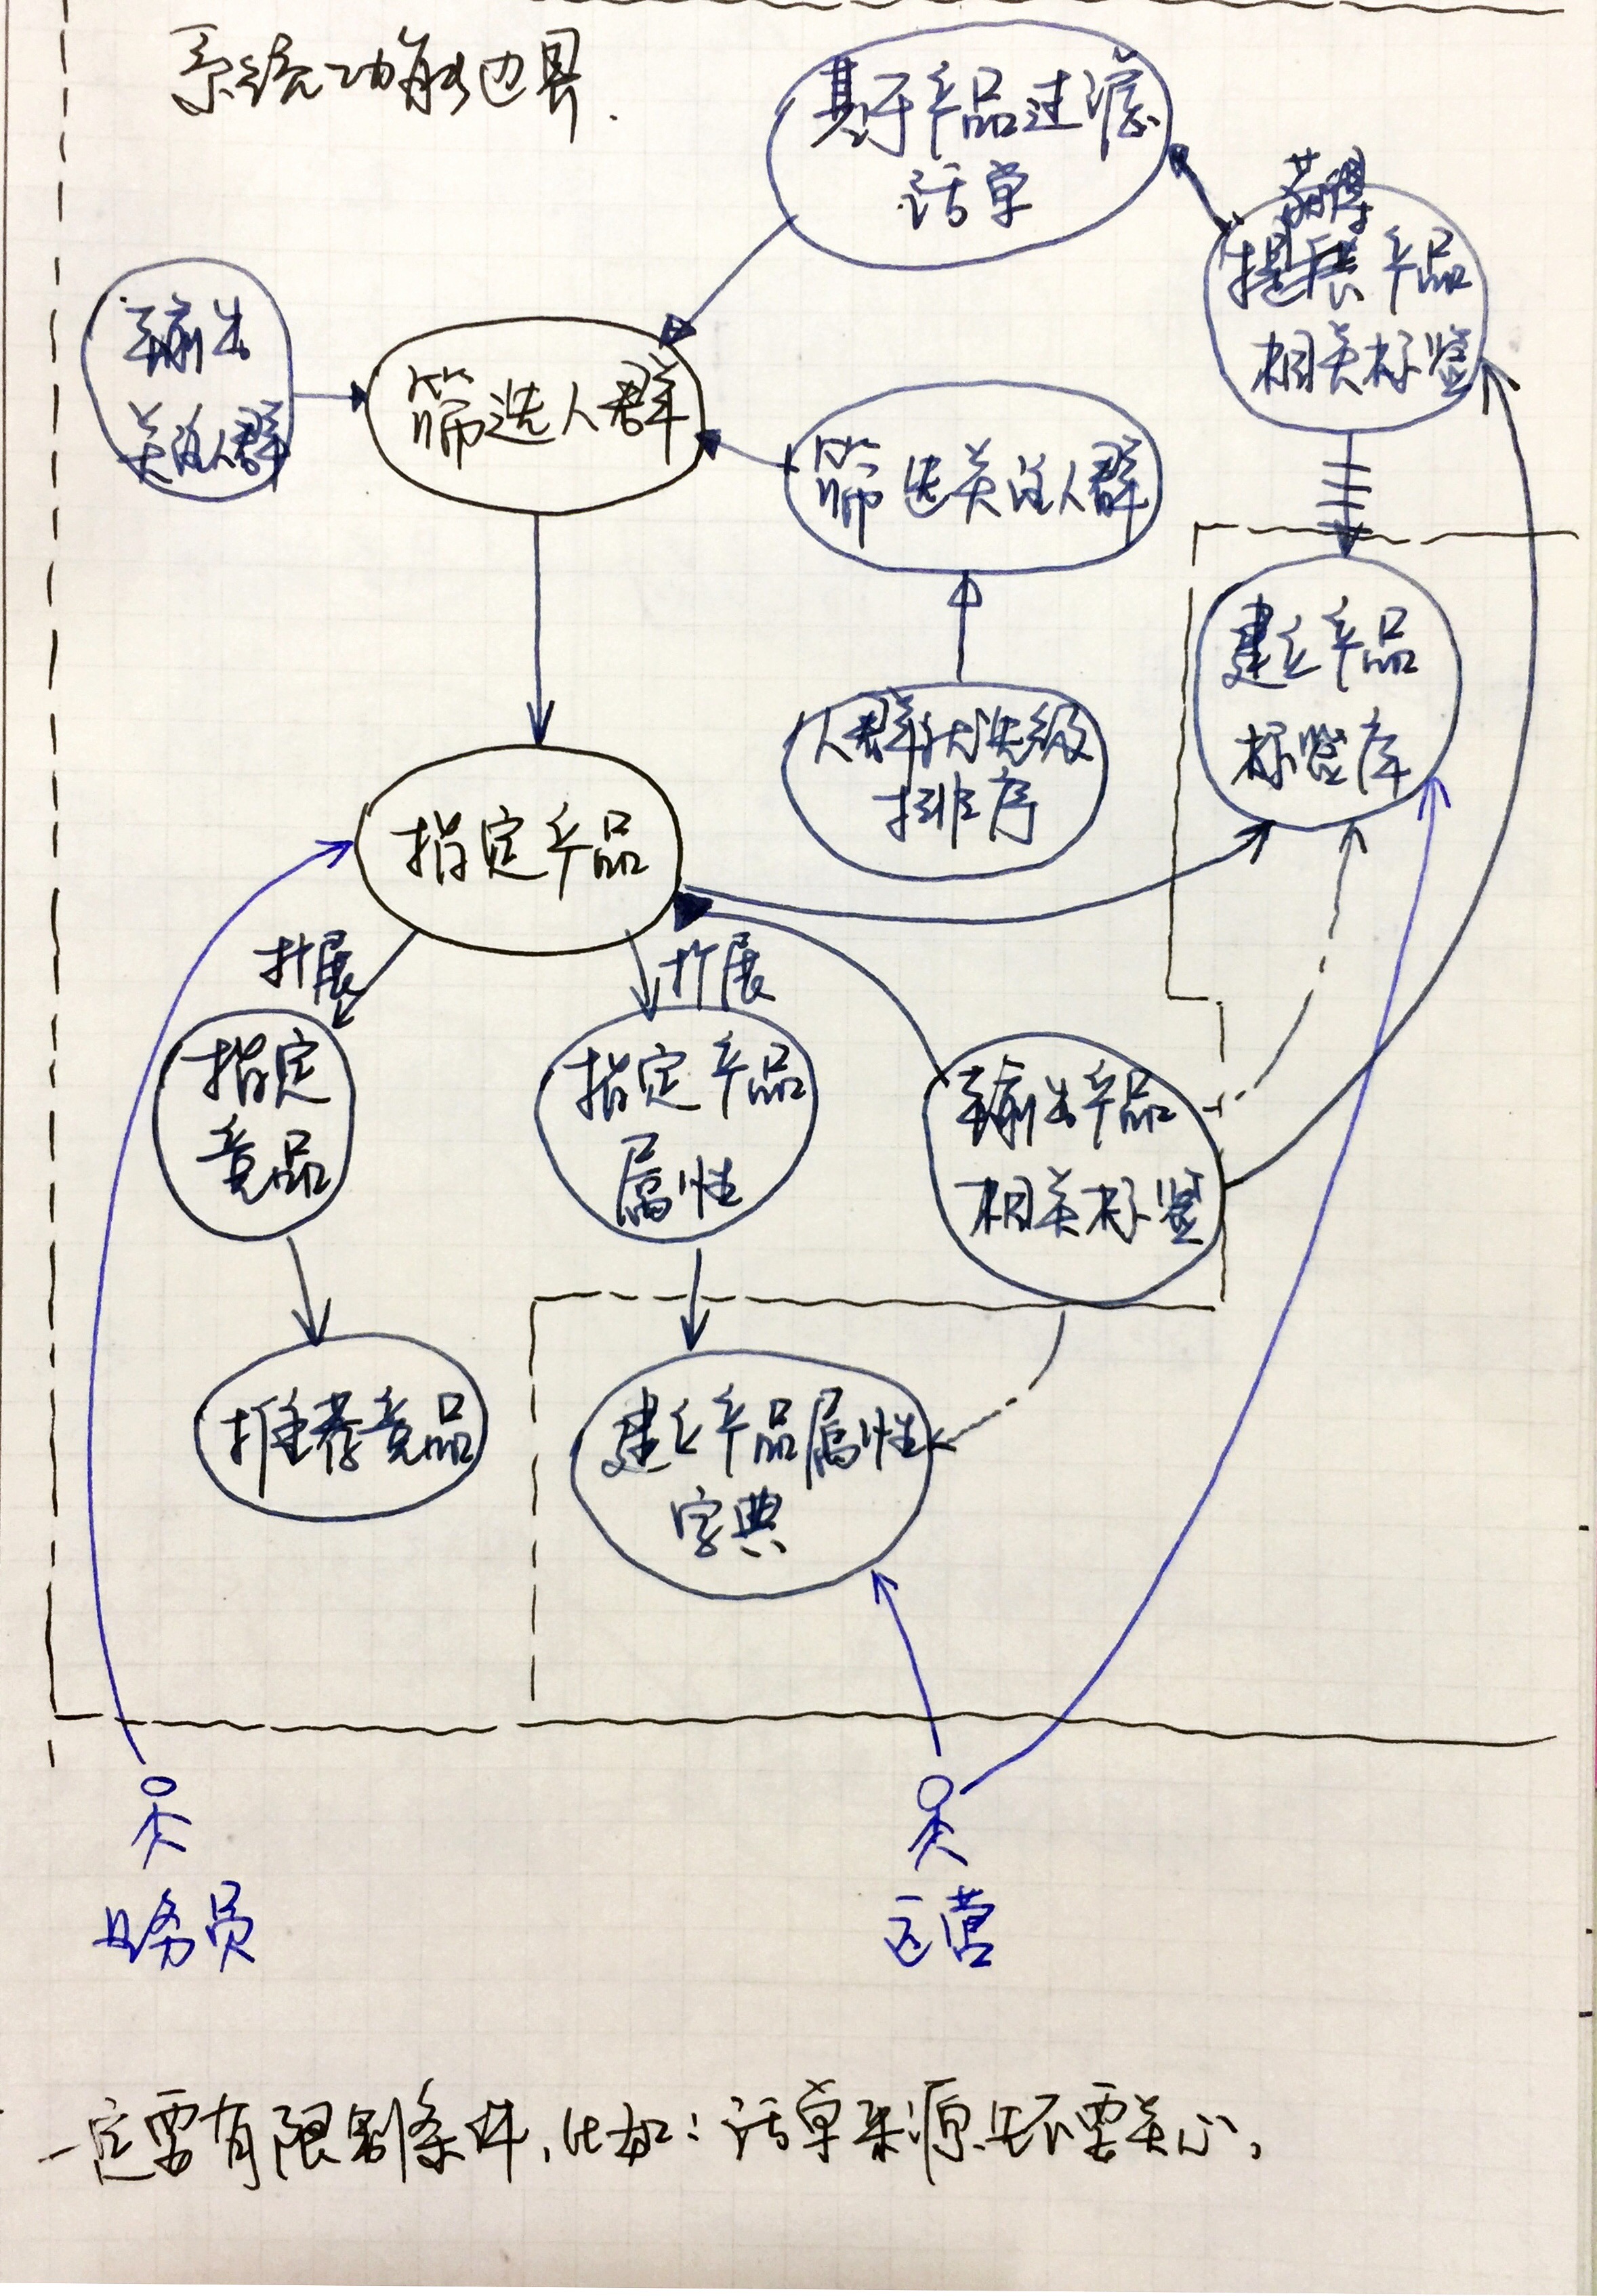 系统功能边界.
基于产品过滤
话单
获得
提供产品
相关标签
输出
关注人群
筛选人群
筛选关注人群
建立产品
标签库
人群优先级
排序
指定产品
扩展
扩展
指定
竞品
指定产品
属性
输出产品
相关标签
推荐竞品
建立产品属性
字典
业务员
运营
一定要有限制条件,比如:话单来源先不要关心,